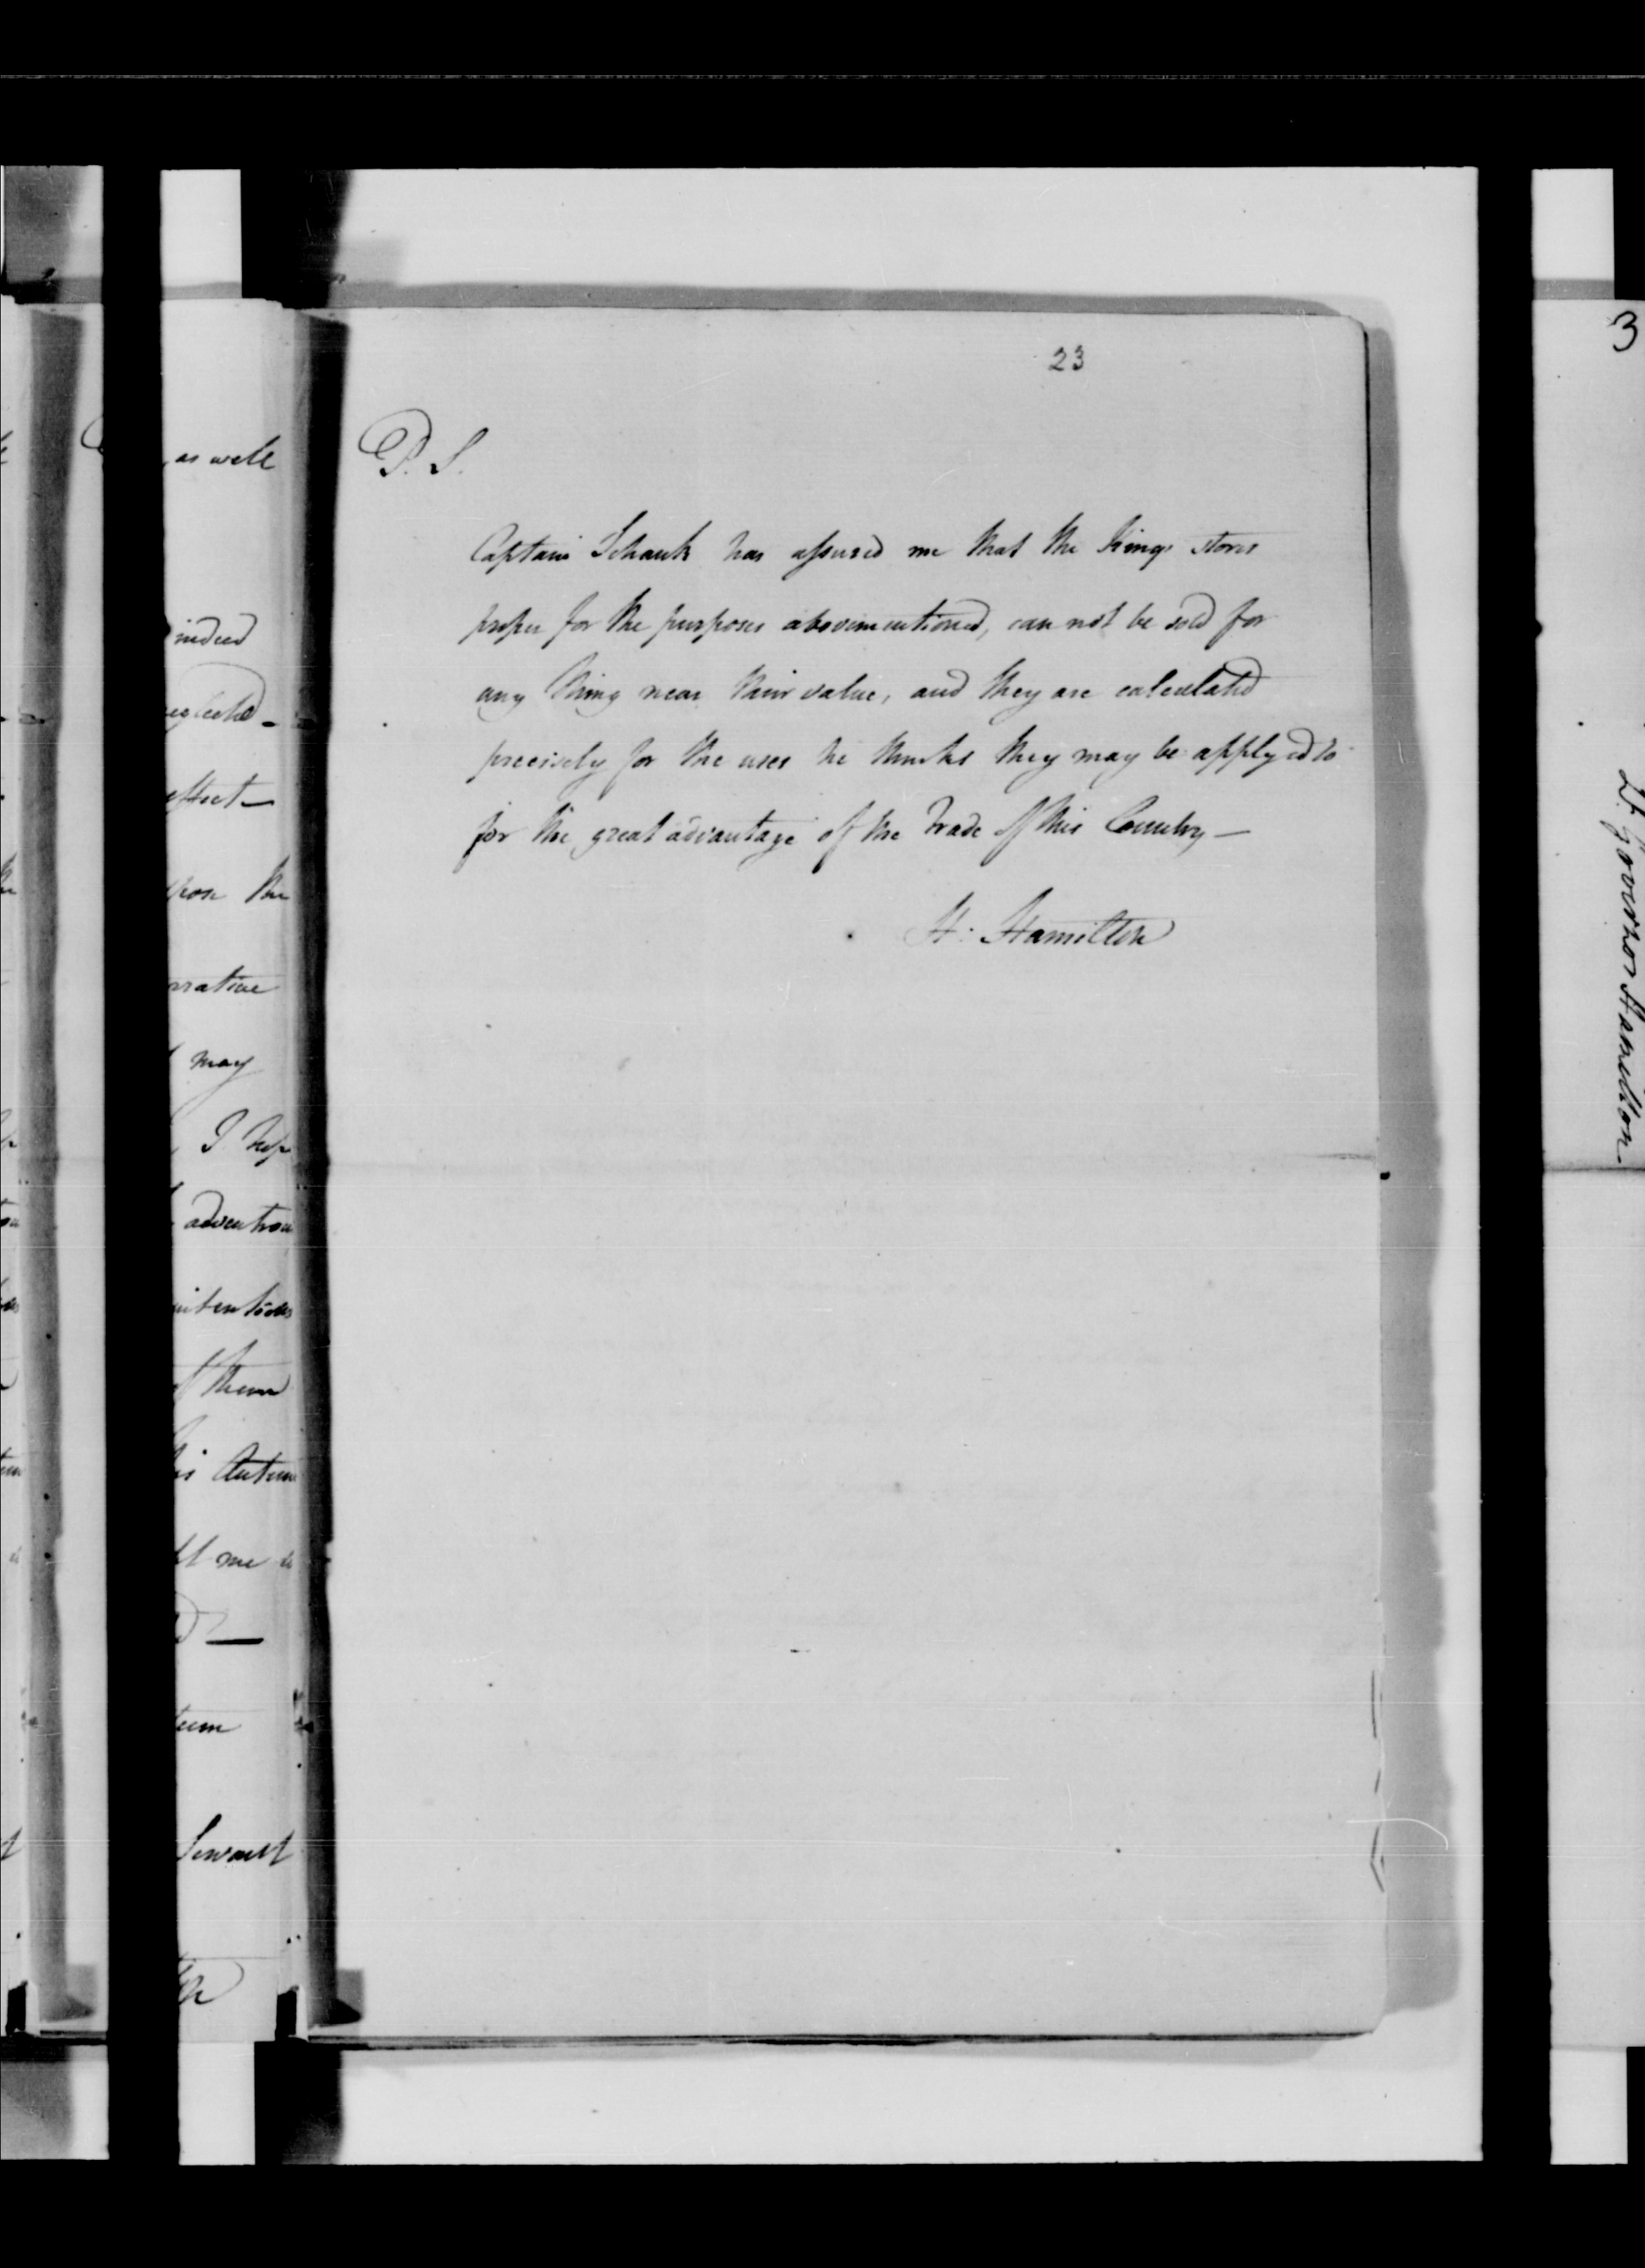 23
P. S.
Captain Schank has assured me that the Kings stores
proper for the purposes abovementioned, can not be sold for
any thing near their value, and they are calculated
precisely for the uses he thinks they may be applyed to
for the great advantage of the Trade of this Country —
H. Hamilton
as well
indeed
effect —
upon the
may
I hope
intentions
them
me
Servant
3
Lt. Governor Hamilton